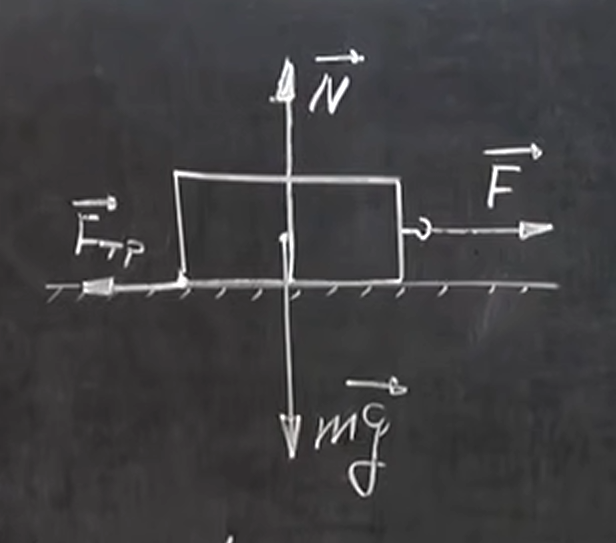 N
F
Fтр
mg